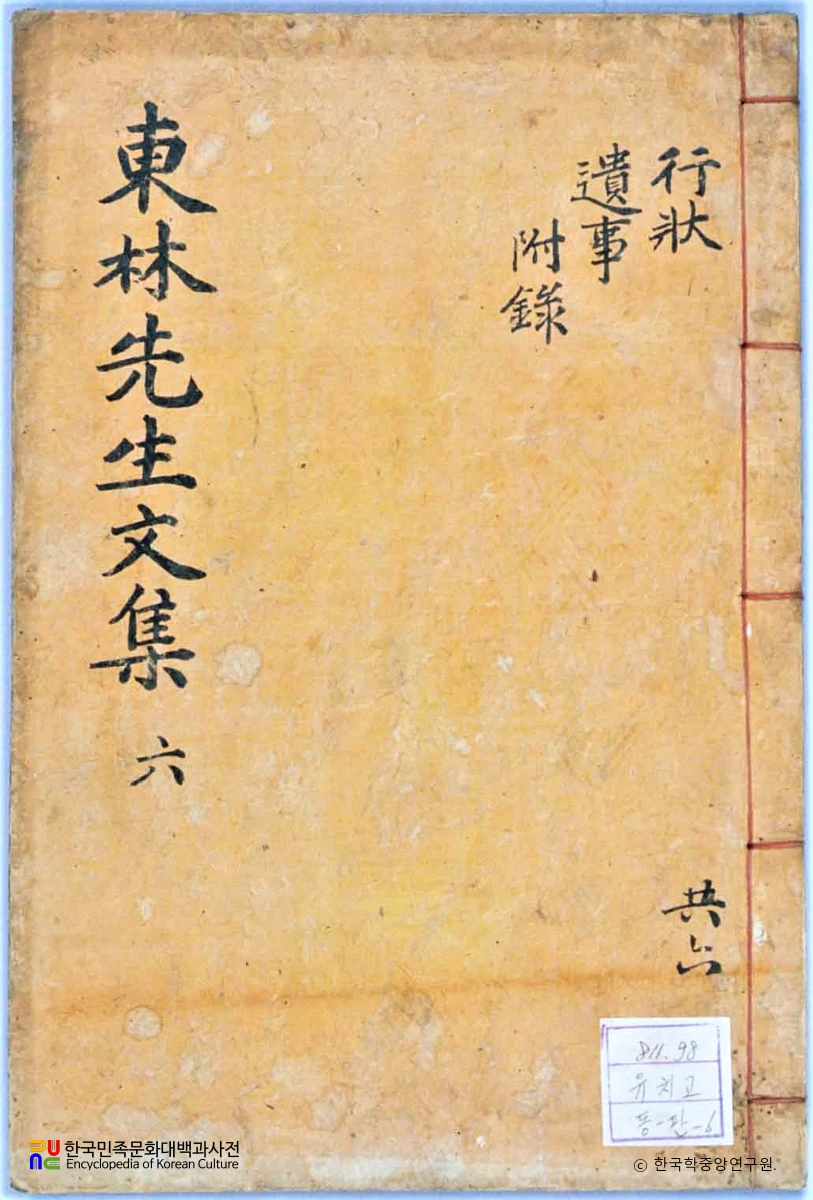 行狀
遺事
附錄
共六
東林先生文集 六
811.98
유치고
한국민족문화대백과사전
Encyclopedia of Korean Culture
ⓒ 한국학중앙연구원.